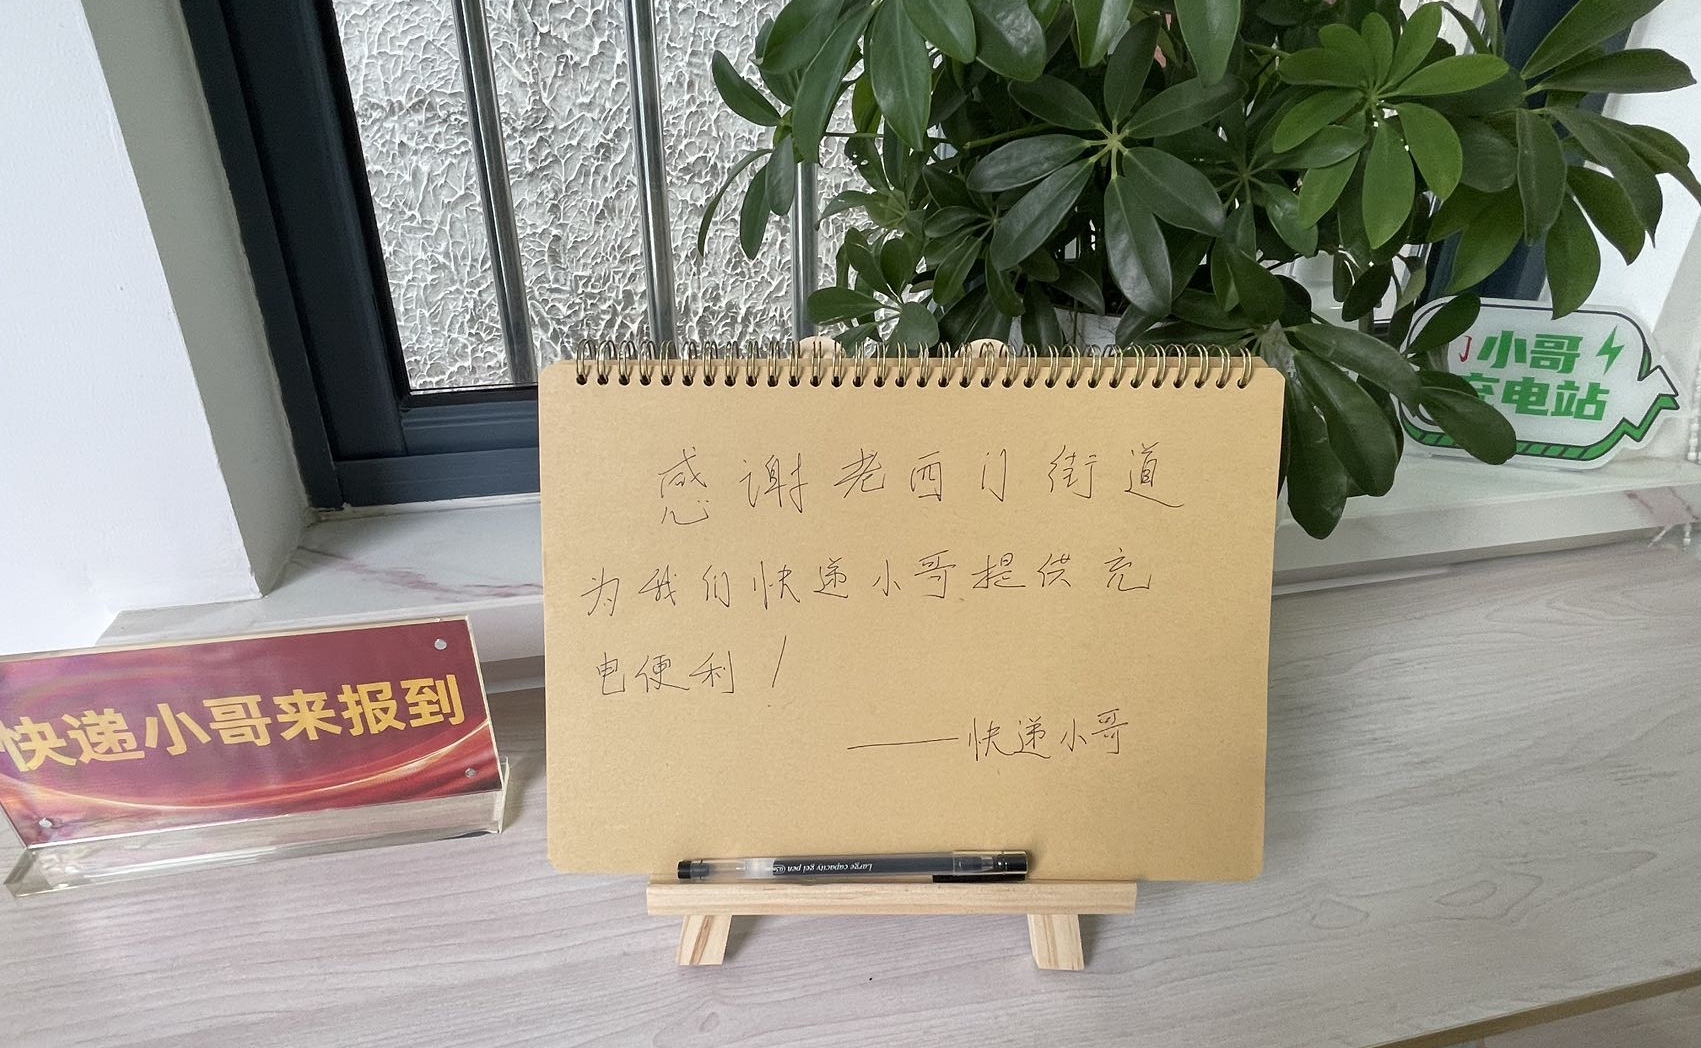 感谢老西门街道
为我们快递小哥提供充
电便利!
——快递小哥
快递小哥来报到
小哥
充电站
Large capacity gel pen